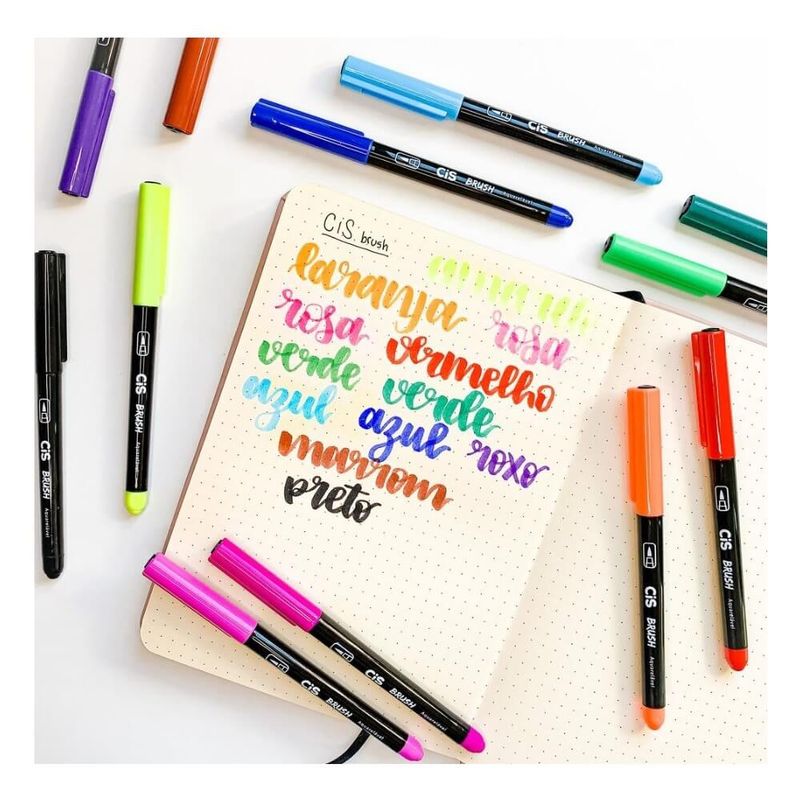 CiS BRUSH Aquarelável
CiS BRUSH Aquarelável
CiS. brush
laranja
rosa rosa
verde vermelho
azul verde
azul roxo
marrom
preto
CiS BRUSH Aquarelável
CiS BRUSH Aquarelável
CiS BRUSH Aquarelável
CiS BRUSH Aquarelável
CiS BRUSH Aquarelável
CiS BRUSH Aquarelável